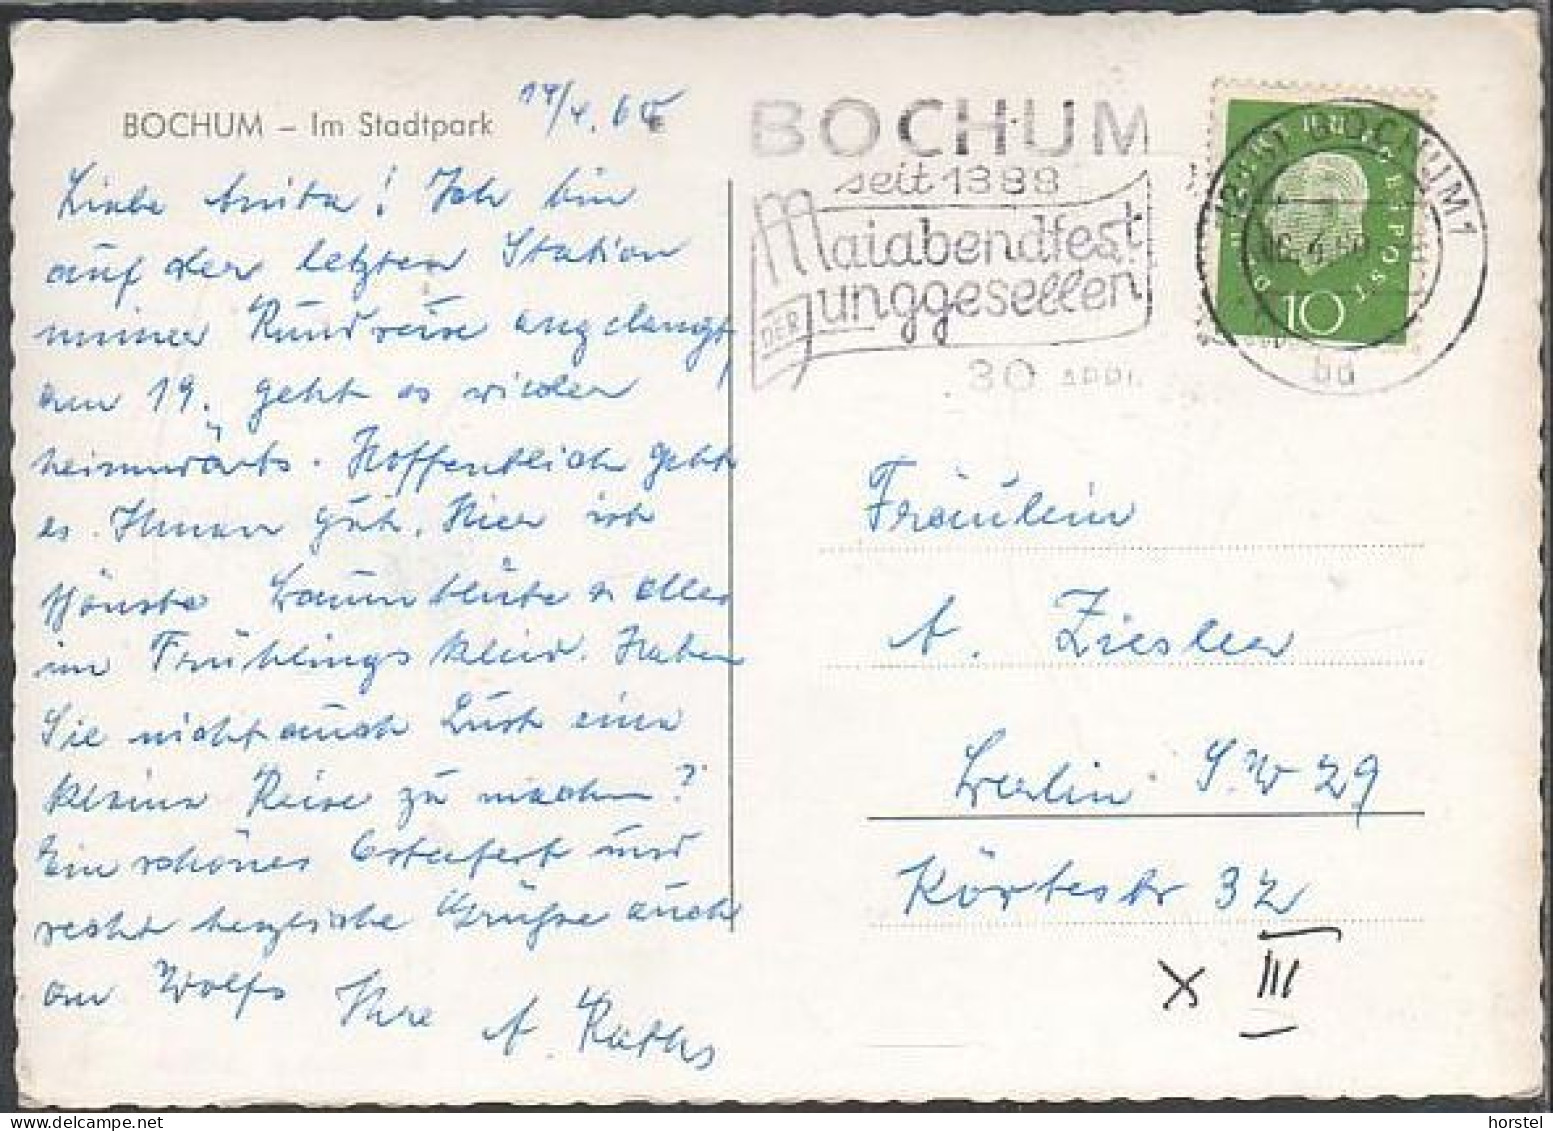 BOCHUM – Im Stadtpark
Liebe Anita! Ich bin
auf der letzten Station
meiner Rundreise angelangt,
am 19. geht es wieder
heimwärts. Hoffentlich geht
es Ihnen gut. Hier ist
schönste Baumblüte u alles
im Frühlingskleid. Haben
Sie nicht auch Lust eine
kleine Reise zu machen?
Ein schönes Osterfest und
recht herzliche Grüße auch
an Wolfs Ihre A.
BOCHUM
seit 1388
Maiabendfest
DER Junggesellen
30 APRIL
BOCHUM 1
bd
DEUTSCHE BUNDESPOST
10
Fräulein
A. Ziesler
Berlin SW 29
Körtestr 32
X III
horstel